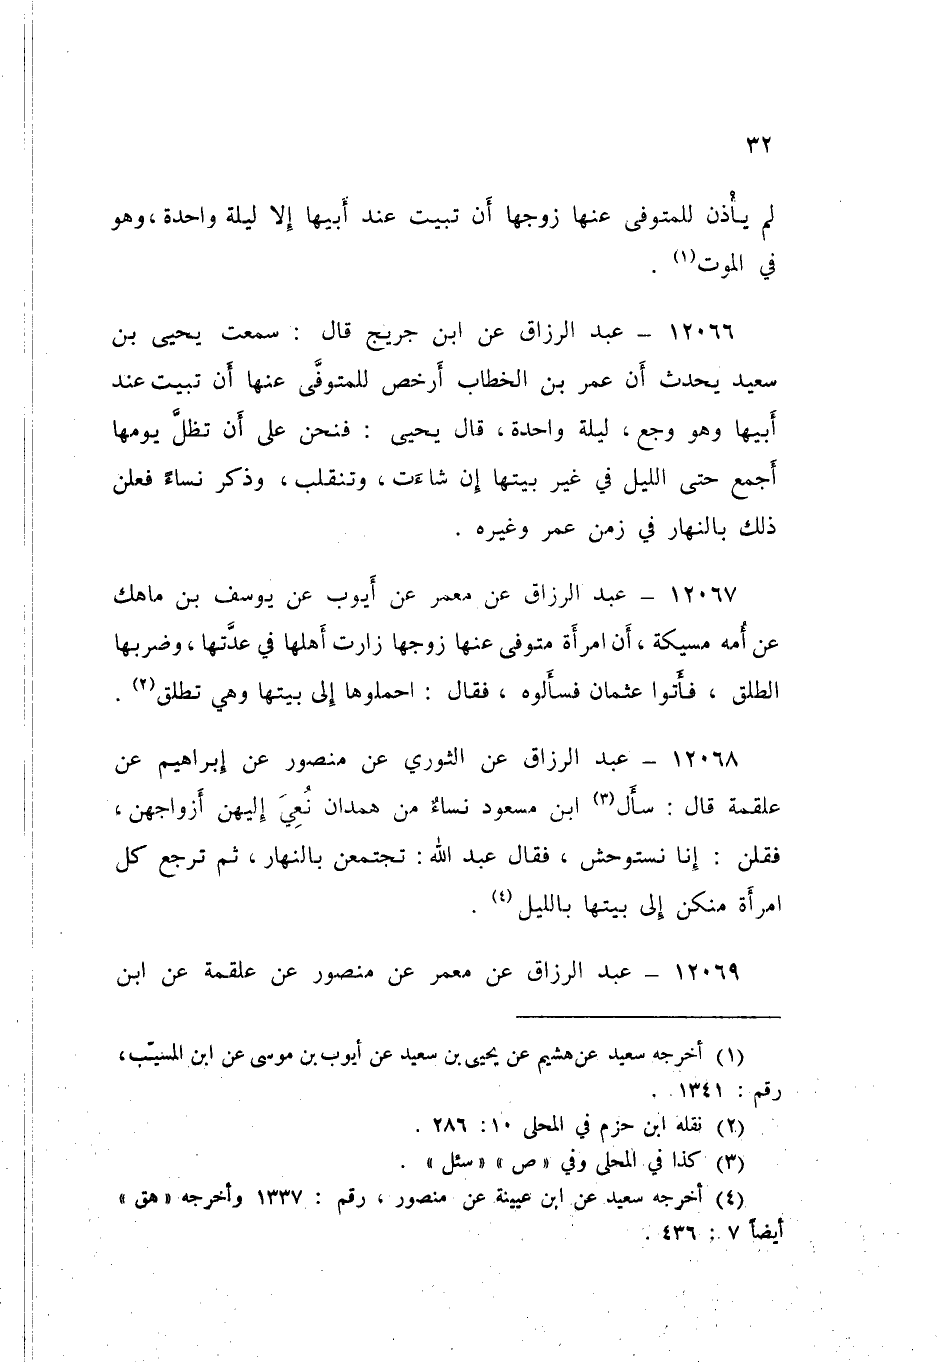 ٣٢
لم يأْذن للمتوفى عنها زوجها أَن تبيت عند أَبيها إلا ليلة واحدة ، وهو
في الموت(١) .
١٢٠٦٦ – عبد الرزاق عن ابن جريج قال : سمعت يحيى بن
سعيد يحدث أَن عمر بن الخطاب أَرخص للمتوفَّى عنها أَن تبيت عند
أَبيها وهو وجع ، ليلة واحدة ، قال يحيى : فنحن على أَن تظلَّ يومها
أَجمع حتى الليل في غير بيتها إن شاءَت ، وتنقلب ، وذكر نساءً فعلن
ذلك بالنهار في زمن عمر وغيره .
١٢٠٦٧ – عبد الرزاق عن معمر عن أَيوب عن يوسف بن ماهك
عن أُمه مسيكة ، أَن امرأَة متوفى عنها زوجها زارت أَهلها في عدَّتها ، وضربها
الطلق ، فأَتوا عثمان فسأَلوه ، فقال : احملوها إلى بيتها وهي تطلق(٢) .
١٢٠٦٨ – عبد الرزاق عن الثوري عن منصور عن إبراهيم عن
علقمة قال : سأَل(٣) ابن مسعود نساءٌ من همدان نُعِيَ إليهن أَزواجهن ،
فقلن : إنا نستوحش ، فقال عبد الله : تجتمعن بالنهار ، ثم ترجع كل
امرأَة منكن إلى بيتها بالليل(٤) .
١٢٠٦٩ – عبد الرزاق عن معمر عن منصور عن علقمة عن ابن
(١) أخرجه سعيد عن هشيم عن يحيى بن سعيد عن أيوب بن موسى عن ابن المسيّب ،
رقم : ١٣٤١ .
(٢) نقله ابن حزم في المحلى ١٠ : ٢٨٦ .
(٣) كذا في المحلى وفي «ص» «سئل» .
(٤) أخرجه سعيد عن ابن عيينة عن منصور ، رقم : ١٣٣٧ وأخرجه «هق»
أيضاً ٧ : ٤٣٦ .